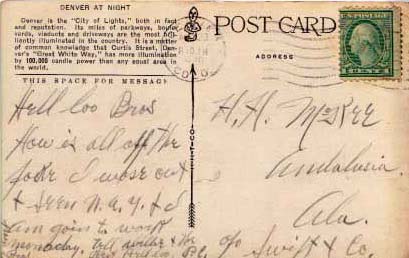 DENVER AT NIGHT
Denver is the "City of Lights," both in fact
and reputation. Its miles of parkways, boule-
vards, viaducts and driveways are the most bril-
liantly illuminated in the country. It is a matter
of common knowledge that Curtis Street, Den-
ver's "Great White Way," has more illumination
by 100,000 candle power than any equal area in
the world.
THIS SPACE FOR MESSAGE
POST CARD
ADDRESS
COLO
CENT
Hell loo Bros
How is all off the
folks I wose out
& seen N.a.y. & I
am goin to work
monaday. tell
H. H. McKee
Andalusia
Ala.
c/o Swift & Co.